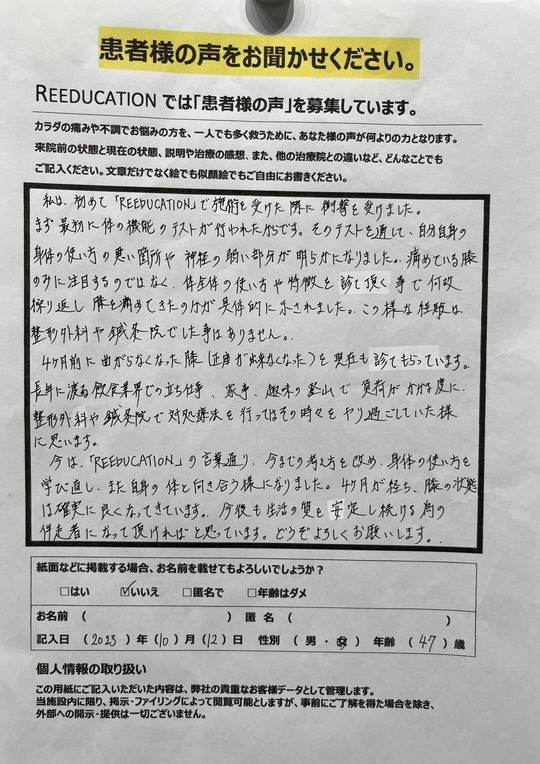 患者様の声をお聞かせください。
REEDUCATION では「患者様の声」を募集しています。
カラダの痛みや不調でお悩みの方を、一人でも多く救うために、あなた様の声が何よりの力となります。
来院前の状態と現在の状態、説明や治療の感想、また、他の治療院との違いなど、どんなことでも
ご記入ください。文章だけでなく絵でも似顔絵でもご自由にお書きください。
私は、初めて「REEDUCATION」で施術を受けた際に衝撃を受けました。
まず最初に体の機能のテストが行われたからです。そのテストを通して、自分自身の
身体の使い方の悪い箇所や神経の弱い部分が明らかになりました。痛めている膝
のみに注目するのではなく、体全体の使い方や特徴を診て頂く事で何故
繰り返し膝を痛めてきたのかが具体的に示されました。この様な経験は
整形外科や鍼灸院でした事はありません。
4ヶ月前に曲がらなくなった膝(正座が出来なくなった)を現在も診てもらっています。
長年に渡る飲食業界での立ち仕事、家事、趣味の登山で負荷がかかる度に、
整形外科や鍼灸院で対処療法を行ってはその時々をやり過ごしていた様
に思います。
今は、「REEDUCATION」の言葉通り、今までの考え方を改め、身体の使い方を
学び直し、また自身の体と向き合う様になりました。4ヶ月が経ち、膝の状態
は確実に良くなってきています。今後も生活の質を安定し続ける為の
伴走者になって頂ければと思っています。どうぞよろしくお願いします。
紙面などに掲載する場合、お名前を載せてもよろしいでしょうか？
□はい ☑いいえ □匿名で □年齢はダメ
お名前 （ ） 匿名 （ ）
記入日 （2023）年（10）月（12）日 性別 （男・女） 年齢（47）歳
個人情報の取り扱い
この用紙にご記入いただいた内容は、弊社の貴重なお客様データとして管理します。
当施設内に限り、掲示・ファイリングによって閲覧可能としますが、事前にご了解を得た場合を除き、
外部への開示・提供は一切ございません。